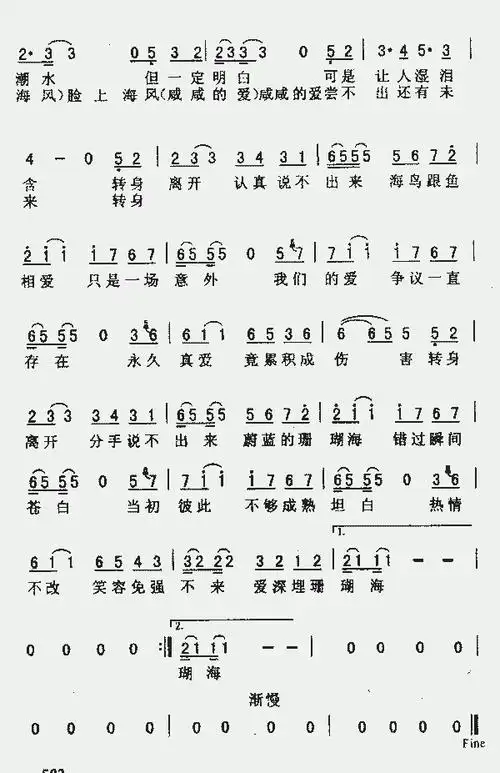 2· 3 3 0 5 3 2 | 2 3 3 3 0 5 2 | 3· 4 5· 3
潮水 但一定明白 可是 让人湿泪
海风)脸上 海风(咸咸的爱)咸咸的爱尝不出还有未
4 - 0 5 2 | 2 3 3 3 4 3 1 | 6 5 5 5 5 5 6 7 2
含 转身 离开 认真说不出来 海鸟跟鱼
来 转身
2 1 1 1 7 6 7 | 6 5 5 5 0 5 7 | 7 1 1 1 7 6 7
相爱 只是一场意外 我们的爱 争议一直
6 5 5 5 0 3 6 | 6 1 1 6 5 3 6 | 6 6 6 5 5 5 2
存在 永久真爱 竟累积成伤 害转身
2 3 3 3 4 3 1 | 6 5 5 5 5 5 6 7 2 | 2 1 1 1 7 6 7
离开 分手说不出来 蔚蓝的珊瑚海 错过瞬间
6 5 5 5 0 5 7 | 7 1 1 1 7 6 7 | 6 5 5 5 0 3 6
苍白 当初彼此 不够成熟坦白 热情
1.
6 1 1 6 5 4 3 | 3 2 2 2 3 2 1 2 | 2 1 1 1 - -
不改 笑容免强不来 爱深埋珊瑚海
2.
0 0 0 0 | 0 0 0 0 :‖ 2 1 1 1 - - | 0 0 0 0
瑚海
渐慢
0 0 0 0 | 0 0 0 0 | 0 0 0 0 ‖
Fine